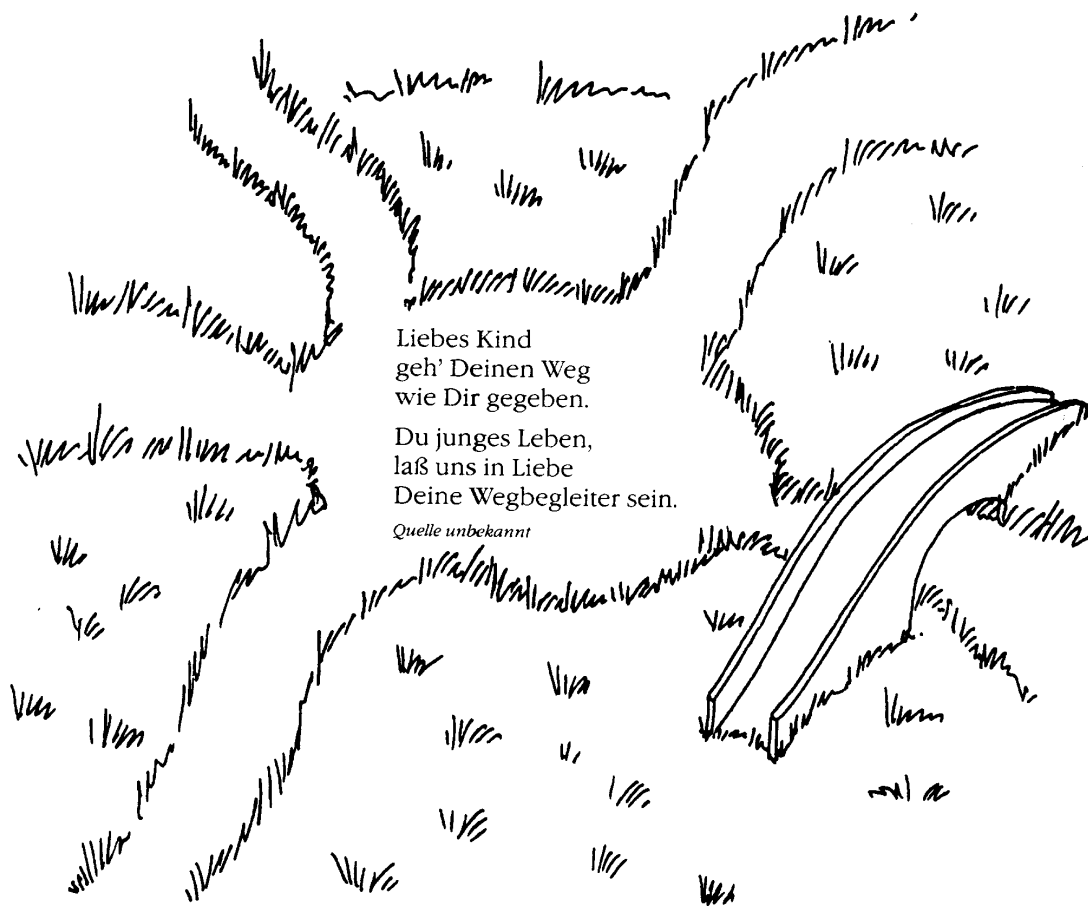 Liebes Kind
geh' Deinen Weg
wie Dir gegeben.
Du junges Leben,
laß uns in Liebe
Deine Wegbegleiter sein.
Quelle unbekannt